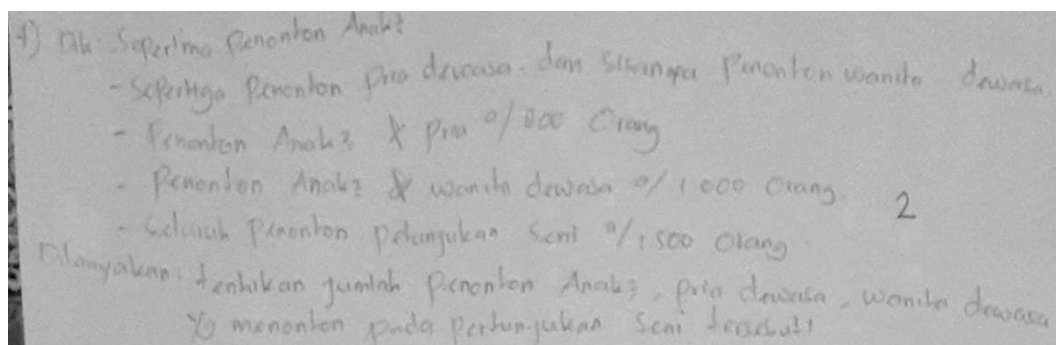 4) Dik: Seperlima Penonton Anak2
- Sepertiga Penonton pria dewasa. dan sisanya Penonton wanita dewasa.
- Penonton Anak2 & pria a/ 800 Orang
- Penonton Anak2 & wanita dewasa a/ 1000 Orang.
2
- Seluruh Penonton Petunjukan Seni a/ 1500 Orang.
Ditanyakan: tentukan jumlah Penonton Anak2, pria dewasa, wanita dewasa
yg menonton pada Pertunjukan Seni tersebut!